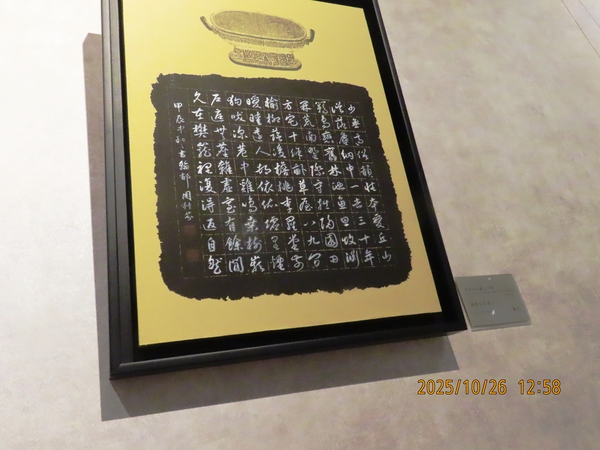 少無適俗韻性本愛丘山
誤落塵網中一去三十年
羈鳥戀舊林池魚思故淵
開荒南野際守拙歸園田
方宅十餘畝草屋八九間
榆柳蔭後檐桃李羅堂前
曖曖遠人村依依墟里煙
狗吠深巷中雞鳴桑樹巔
戶庭無塵雜虛室有餘閒
久在樊籠裡復得返自然
甲辰
2025/10/26 12:58